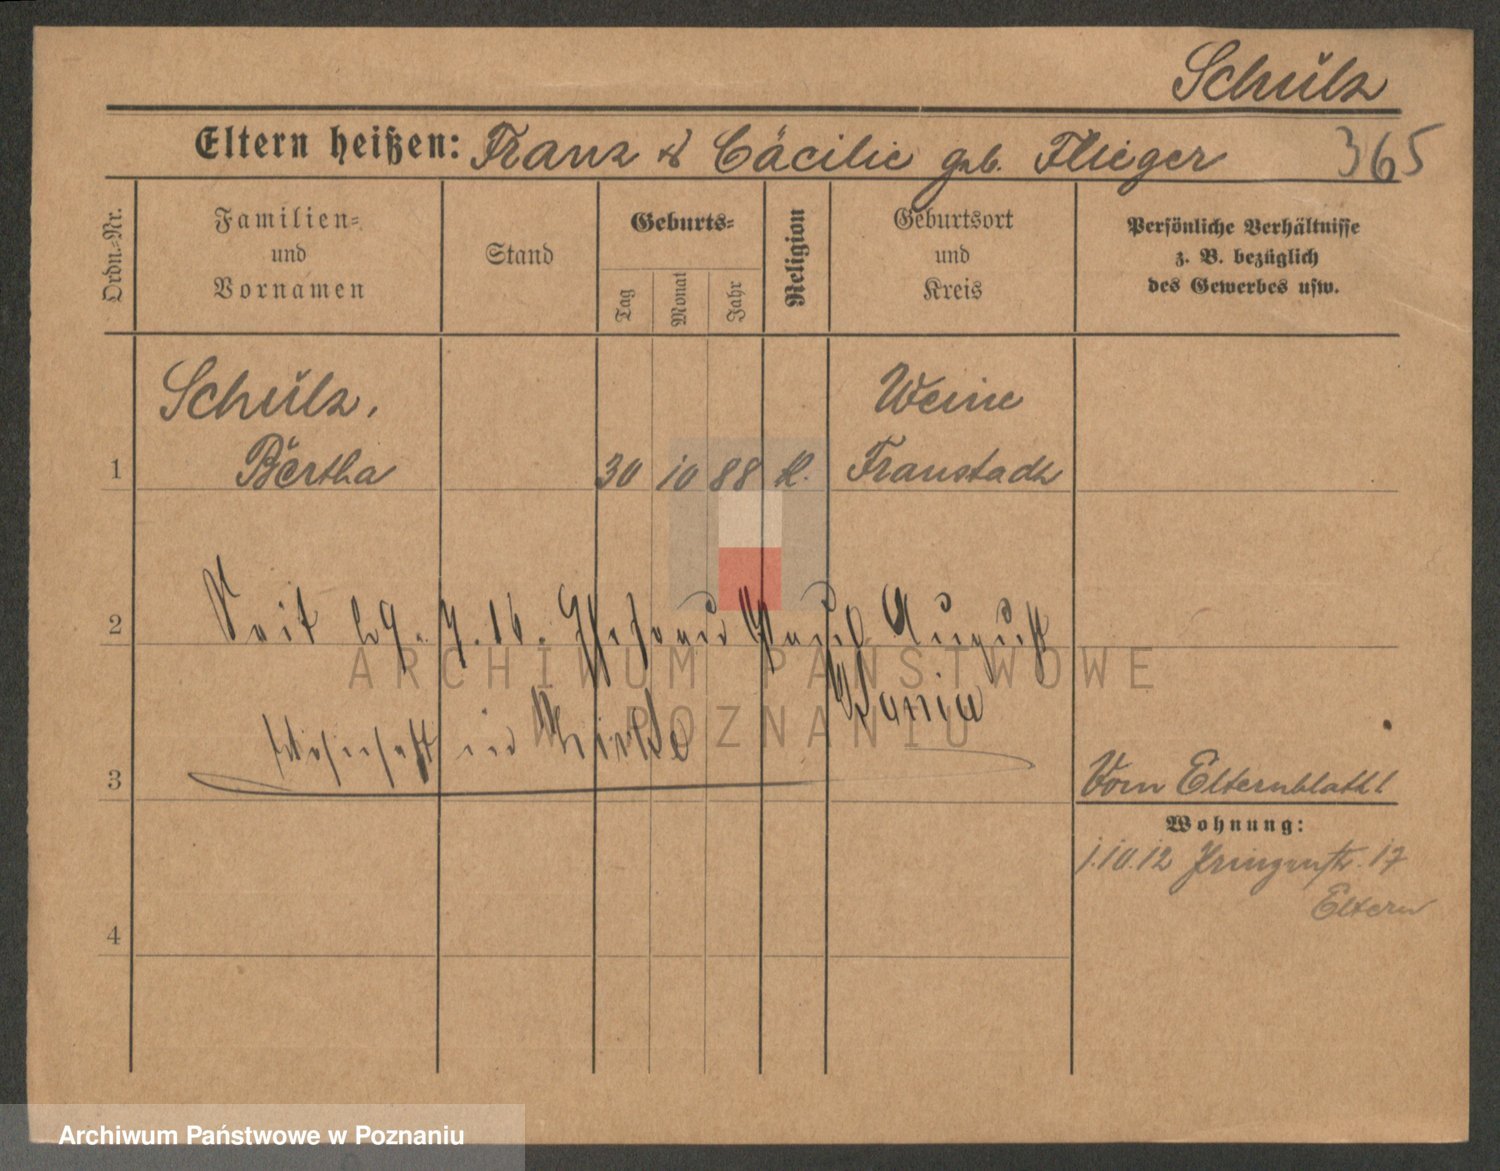 Schülz
Eltern heißen: Franz & Cäcilie geb. Flieger 365
Ordn.=Nr.
Familien= und Vornamen
Stand
Geburts=
Tag
Monat
Jahr
Religion
Geburtsort und Kreis
Persönliche Verhältnisse z. B. bezüglich des Gewerbes usw.
Schülz,
Bertha
1
30 10 88 K.
Weine
Fraustadt
2
Seit 29. 7. 16. Ehefrau Paul August
wohnhaft in
3
Vom Elternblatt!
Wohnung:
1.10.12 Prinzenstr. 17
Eltern
4
ARCHIWUM PAŃSTWOWE
W POZNANIU
Archiwum Państwowe w Poznaniu